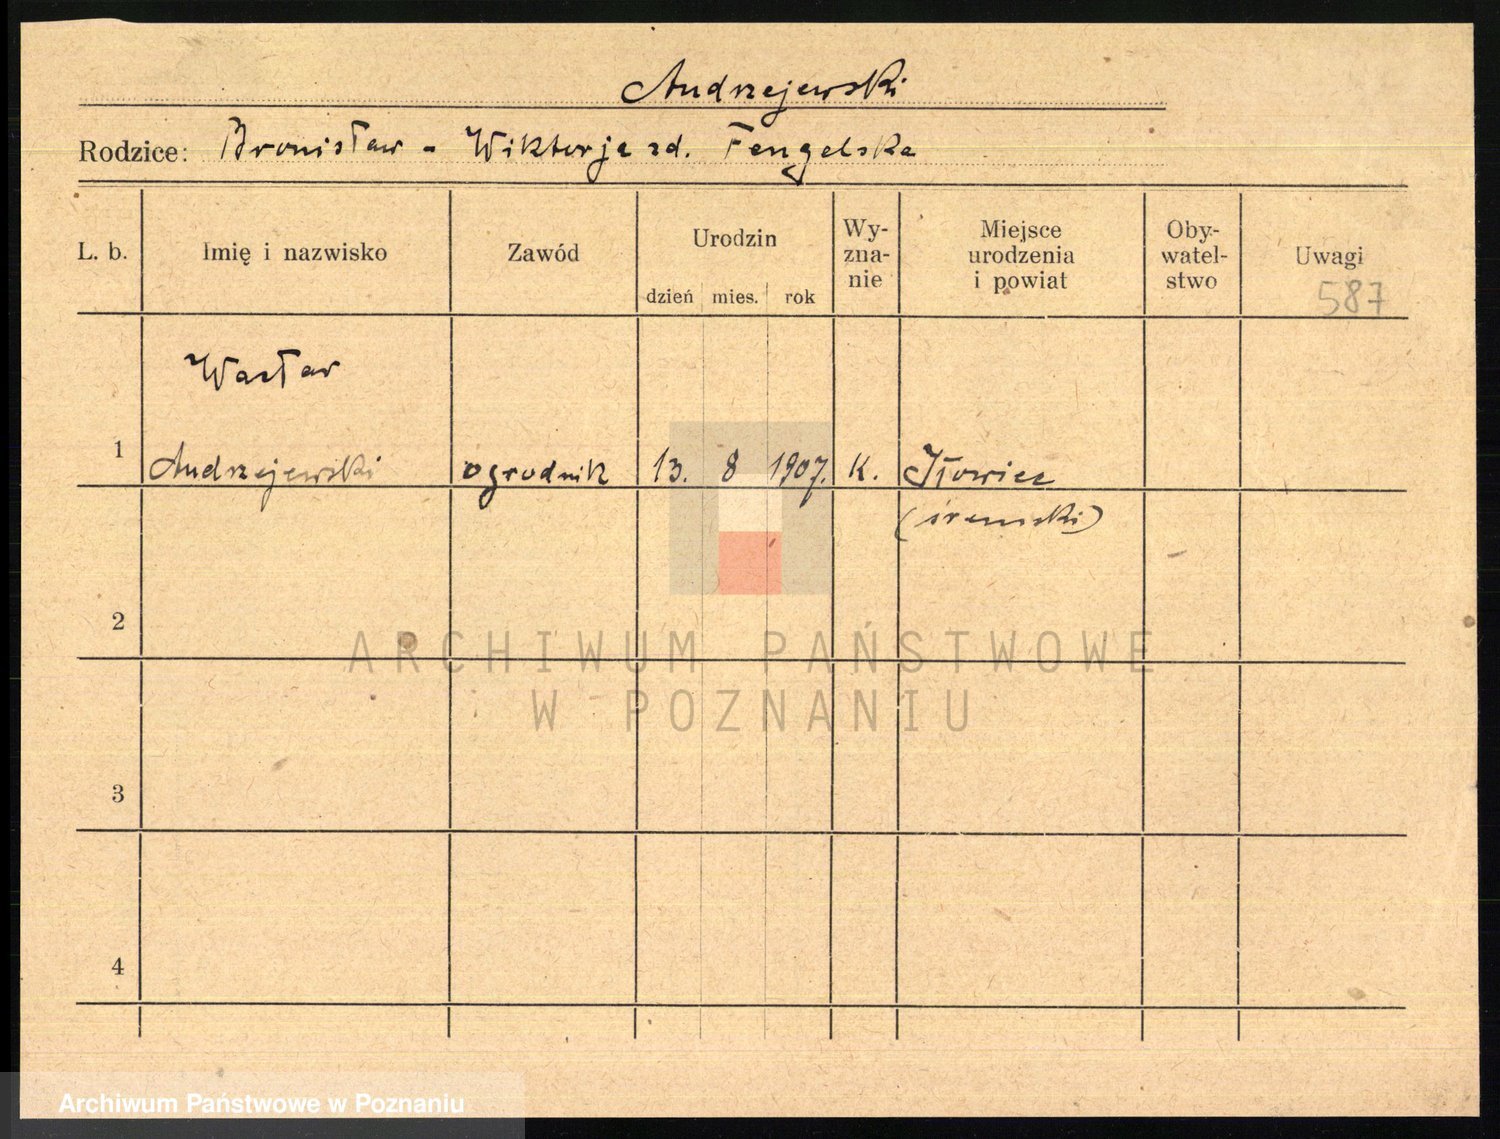 Andrzejewski
Rodzice: Bronisław - Wiktorja zd. Fengelska
L. b.
Imię i nazwisko
Zawód
Urodzin
dzień mies. rok
Wy-
zna-
nie
Miejsce
urodzenia
i powiat
Oby-
watel-
stwo
Uwagi
587
Wacław
1 Andrzejewski ogrodnik 13. 8 1907. K. Iłowiec
(śremski)
2
3
4
ARCHIWUM PAŃSTWOWE
W POZNANIU
Archiwum Państwowe w Poznaniu